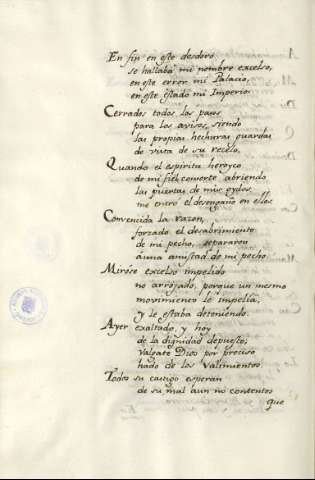 En fin en este desdoro
se hallaba mi nombre excelso,
en este error mi Palacio,
en este Estado mi Imperio.
Cerrados todos los pasos
para los avisos, siendo
las propias hechuras guardas
de vista de su recelo.
Quando el espiritu heroyco
de mi fiel consorte abriendo
las puertas de mis oydos
me entró el desengaño en ellos
Convencida la razon,
forzado el desabrimiento
de mi pecho, separaron
á una amistad de mi pecho.
Mirose excelso impelido
no arrojado, porque un mesmo
movimiento le impelia,
y le estaba deteniendo.
Ayer exaltado, y hoy
de la dignidad depuesto;
valgate Dios por preciso
hado de los Valimientos
Todos su castigo esperan
de su mal aun no contentos
que